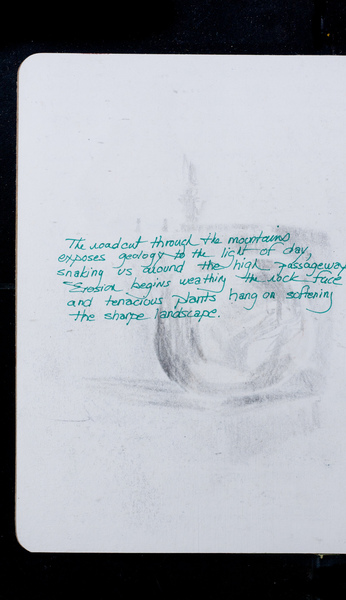 The roadcut through the mountains
exposes geology to the light of day,
snaking us around the high passageway
Erosion begins weathing the rock face
and tenacious plants hang on softening
the sharpe landscape.